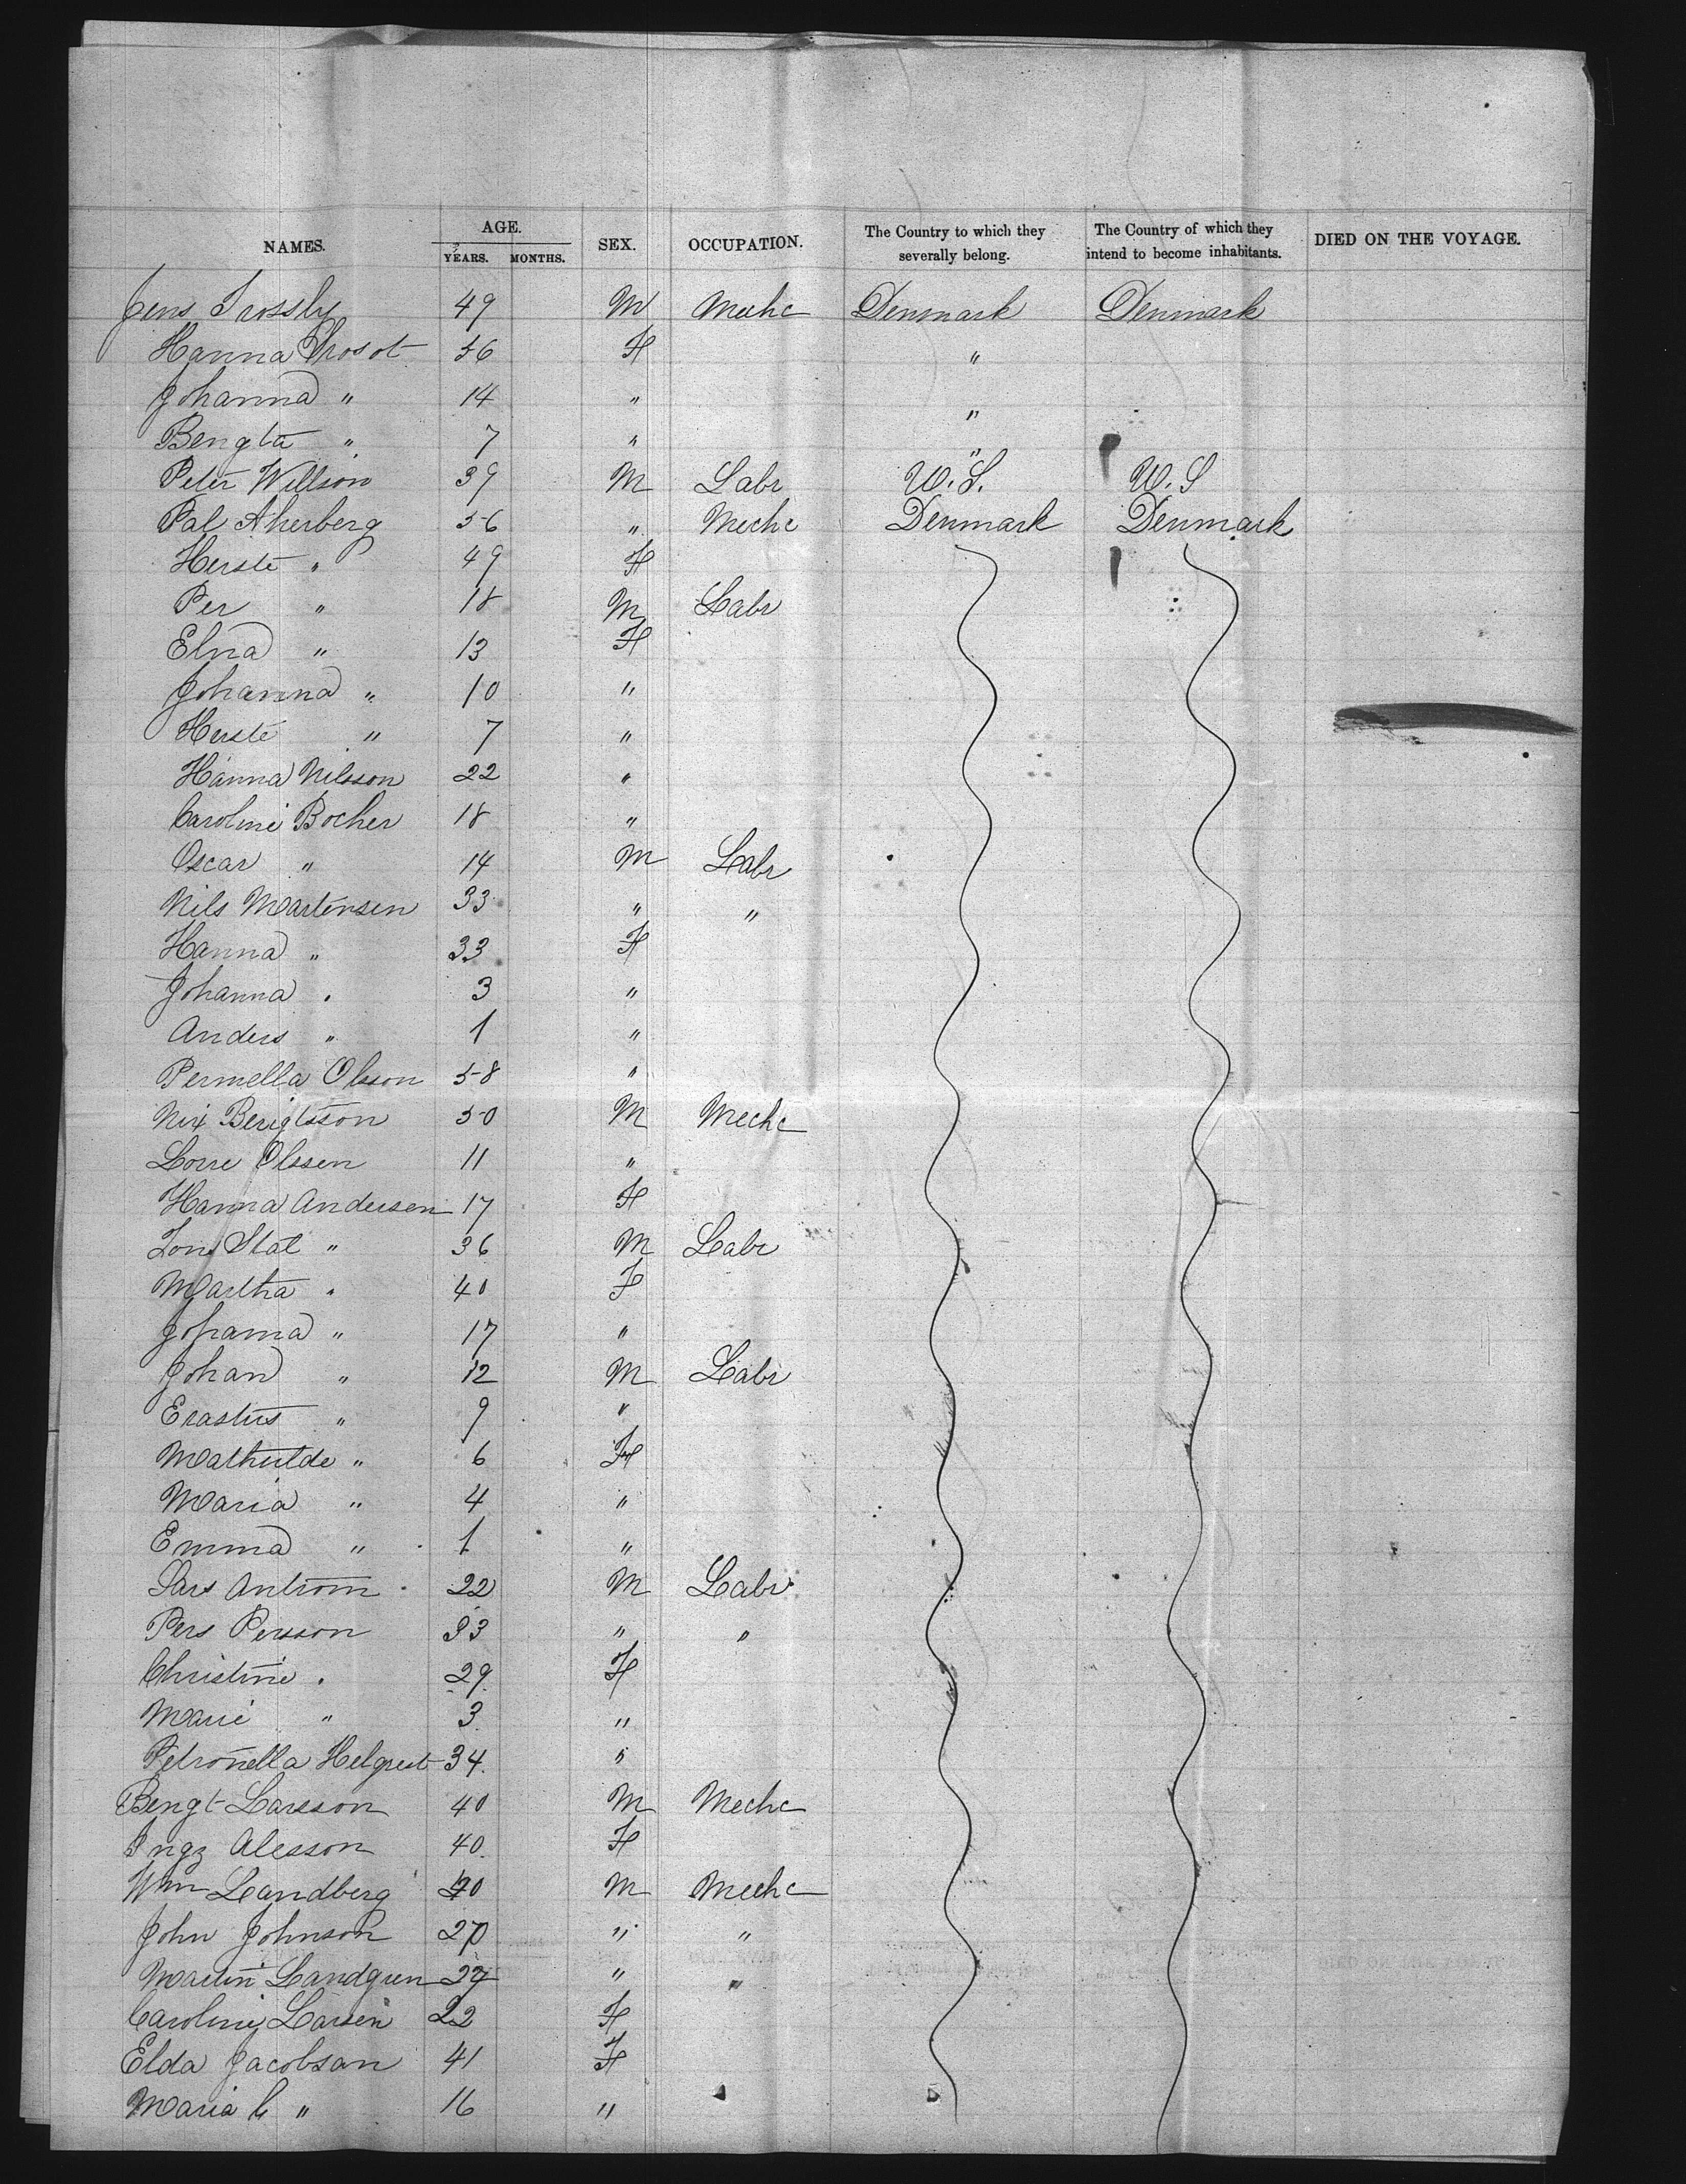 NAMES. AGE. YEARS. MONTHS. SEX. OCCUPATION. The Country to which they severally belong. The Country of which they intend to become inhabitants. DIED ON THE VOYAGE.
Jens Trossly 49 M Mechc Denmark Denmark
Hanna Throsot 56 F "
Johanna " 14 " "
Bengta " 7 " "
Peter Willson 39 M Labr U.S. U.S
Pal Akerberg 56 " Mechc Denmark Denmark
Herste " 49 F
Per " 18 M Labr
Elna " 13 F
Johanna " 10 "
Herste " 7 "
Hanna Nilsson 22 "
Caroline Bocher 18 "
Oscar " 14 M Labr
Nils Martensen 33 " "
Hanna " 33 F
Johanna " 3 "
Anders " 1 "
Pernella Olsson 58 "
Bengtsson 50 M Mechc
Olssen 11 "
Hanna Andersen 17 F
Stal " 36 M Labr
Martha " 40 F
Johanna " 17 "
Johan " 12 M Labr
Erastus " 9 "
Mathulde " 6 F
Maria " 4 "
Emma " 1 "
Lars Antrom 22 M Labr
Pers Persson 33 " "
Christine " 29 F
Marie " 3 "
Petronella Helgrest 34 "
Bengt Larsson 40 M Mechc
Alesson 40 F
Wm Landberg 20 M Mechc
John Johnson 27 " "
Martin Landgren " "
Caroline Larsen 22 F
Elda Jacobsan 41 F
Maria C " 16 "